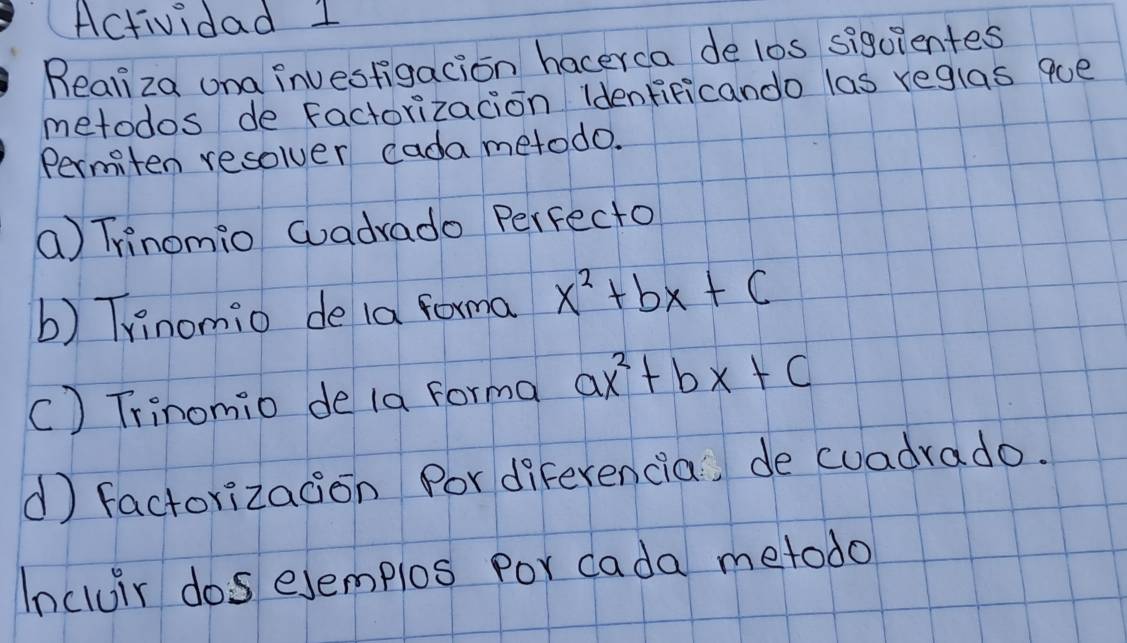 Actividad 1
Realiza una investigación hacerca de los siguientes
metodos de Factorización identificando las reglas que
Permiten resolver cada metodo.
a) Trinomio Cuadrado Perfecto
b) Trinomio de la forma x² + bx + C
C) Trinomio de la Forma ax² + bx + C
d) Factorización Por diferencias de cuadrado.
Incluir dos eJemplos Por cada metodo